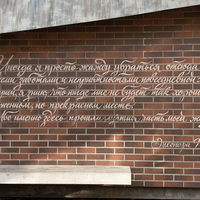 Иногда я просто жажду убраться отсюда
заботами и неприятностями повседневной
я знаю, что нигде мне не будет так хорошо
но прекрасном месте.
именно здесь прошла лучшая часть моей